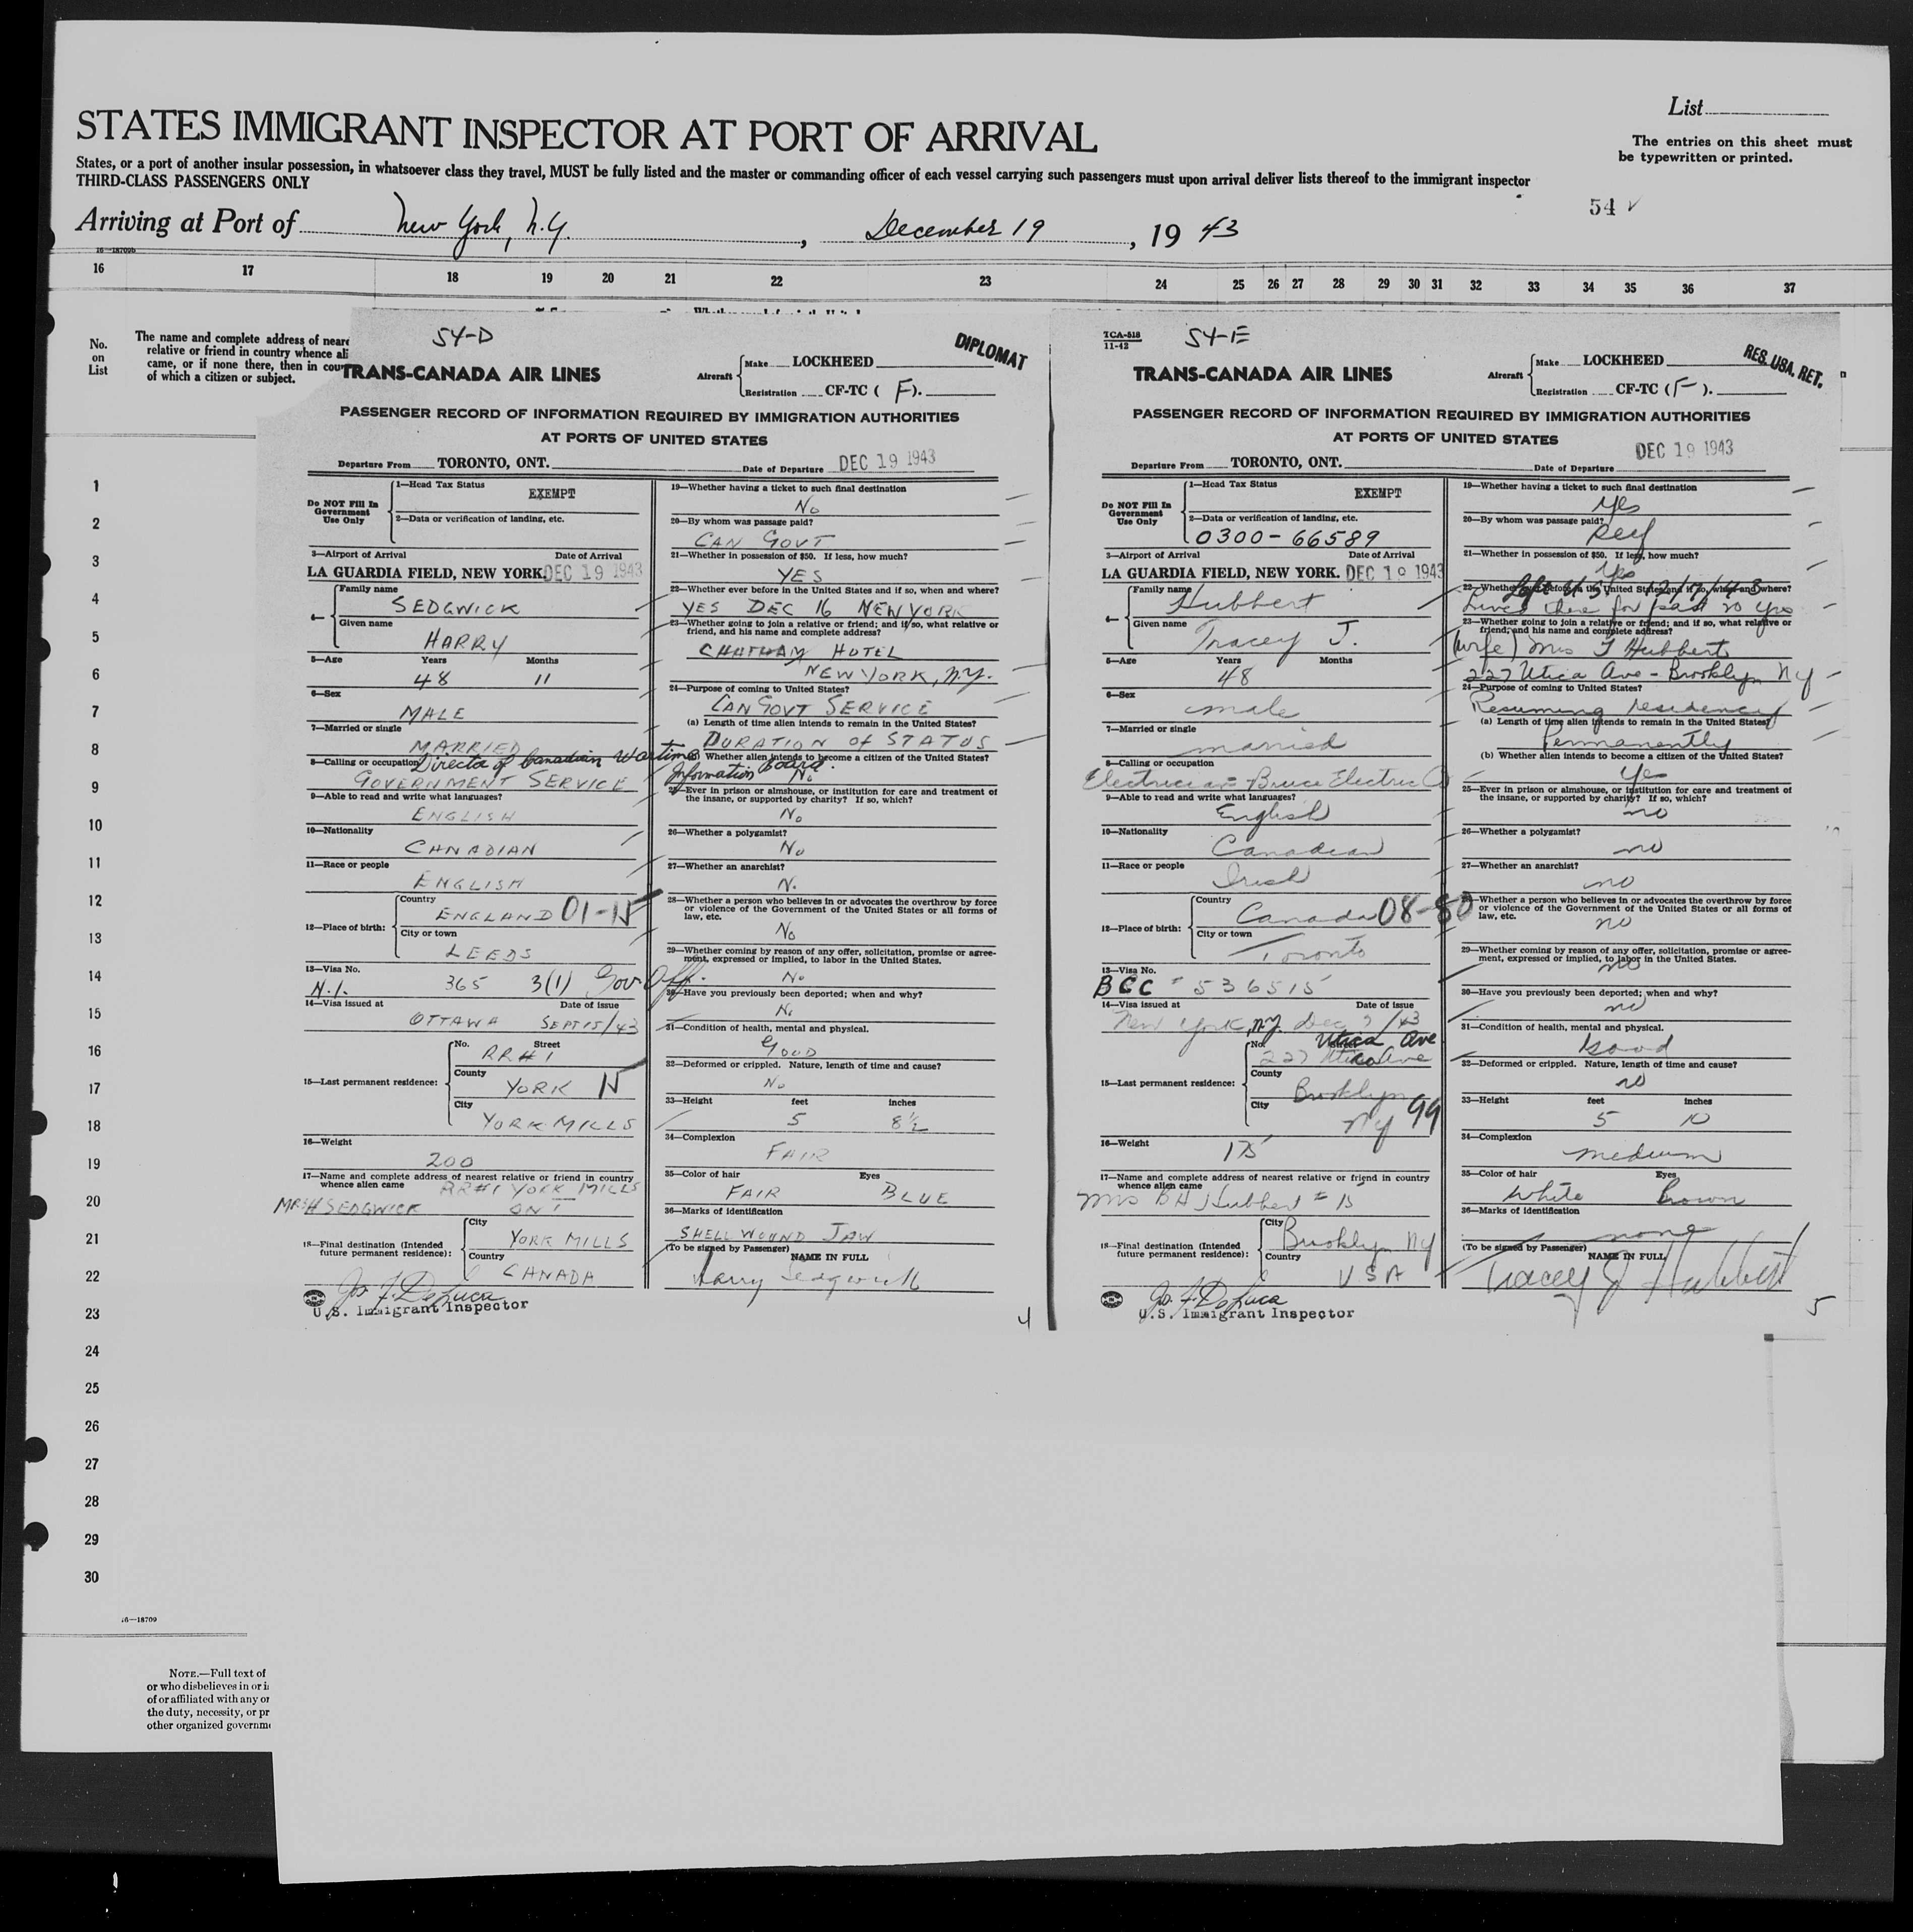 List
STATES IMMIGRANT INSPECTOR AT PORT OF ARRIVAL
The entries on this sheet must
be typewritten or printed.
States, or a port of another insular possession, in whatsoever class they travel, MUST be fully listed and the master or commanding officer of each vessel carrying such passengers must upon arrival deliver lists thereof to the immigrant inspector
THIRD-CLASS PASSENGERS ONLY
54 ✓
Arriving at Port of New York, N.Y., December 19, 1943
16—18709b
16 17 18 19 20 21 22 23 24 25 26 27 28 29 30 31 32 33 34 35 36 37
No.
on
List
The name and complete address of neare
relative or friend in country whence ali
came, or if none there, then in coun
of which a citizen or subject.
1
2
3
4
5
6
7
8
9
10
11
12
13
14
15
16
17
18
19
20
21
22
23
24
25
26
27
28
29
30
54-D
DIPLOMAT
TRANS-CANADA AIR LINES
Aircraft
Make LOCKHEED
Registration CF-TC ( F ).
PASSENGER RECORD OF INFORMATION REQUIRED BY IMMIGRATION AUTHORITIES
AT PORTS OF UNITED STATES
Departure From TORONTO, ONT.
Date of Departure DEC 19 1943
Do NOT Fill In
Government
Use Only
1—Head Tax Status
EXEMPT
2—Data or verification of landing, etc.
3—Airport of Arrival Date of Arrival
LA GUARDIA FIELD, NEW YORK. DEC 19 1943
4—
Family name
SEDGWICK
Given name
HARRY
5—Age Years Months
48 11
6—Sex
MALE
7—Married or single
MARRIED
8—Calling or occupation Director of Canadian Wartime
Information Board.
GOVERNMENT SERVICE
9—Able to read and write what languages?
ENGLISH
10—Nationality
CANADIAN
11—Race or people
ENGLISH
12—Place of birth:
Country
ENGLAND 01-15
City or town
LEEDS
13—Visa No.
N.I. 365 3(1) Gov Off.
14—Visa issued at Date of issue
OTTAWA SEPT 15/43
15—Last permanent residence:
No. Street
RR#1
County
YORK 15
City
YORK MILLS
16—Weight
200
17—Name and complete address of nearest relative or friend in country
whence alien came RR#1 YORK MILLS
MRS H SEDGWICK ONT
18—Final destination (Intended
future permanent residence):
City
YORK MILLS
Country
CANADA
Jos. F. DeLuca
U.S. Immigrant Inspector
19—Whether having a ticket to such final destination
No
20—By whom was passage paid?
CAN GOVT
21—Whether in possession of $50. If less, how much?
YES
22—Whether ever before in the United States and if so, when and where?
YES DEC 16 NEW YORK
23—Whether going to join a relative or friend; and if so, what relative or
friend, and his name and complete address?
CHATHAM HOTEL
NEW YORK, N.Y.
24—Purpose of coming to United States?
CAN GOVT SERVICE
(a) Length of time alien intends to remain in the United States?
DURATION of STATUS
(b) Whether alien intends to become a citizen of the United States?
No
25—Ever in prison or almshouse, or institution for care and treatment of
the insane, or supported by charity? If so, which?
No
26—Whether a polygamist?
No
27—Whether an anarchist?
No
28—Whether a person who believes in or advocates the overthrow by force
or violence of the Government of the United States or all forms of
law, etc.
No
29—Whether coming by reason of any offer, solicitation, promise or agree-
ment, expressed or implied, to labor in the United States.
No
30—Have you previously been deported; when and why?
No
31—Condition of health, mental and physical.
GOOD
32—Deformed or crippled. Nature, length of time and cause?
No
33—Height feet inches
5 8½
34—Complexion
FAIR
35—Color of hair Eyes
FAIR BLUE
36—Marks of identification
SHELL WOUND JAW
(To be signed by Passenger)
NAME IN FULL
Harry Sedgwick
4
TCA-518
11-42
54-E
RES. USA. RET.
TRANS-CANADA AIR LINES
Aircraft
Make LOCKHEED
Registration CF-TC ( F ).
PASSENGER RECORD OF INFORMATION REQUIRED BY IMMIGRATION AUTHORITIES
AT PORTS OF UNITED STATES
Departure From TORONTO, ONT.
Date of Departure DEC 19 1943
Do NOT Fill In
Government
Use Only
1—Head Tax Status
EXEMPT
2—Data or verification of landing, etc.
0300-66589
3—Airport of Arrival Date of Arrival
LA GUARDIA FIELD, NEW YORK. DEC 19 1943
4—
Family name
Hubbert
Given name
Tracey J.
5—Age Years Months
48
6—Sex
male
7—Married or single
married
8—Calling or occupation
Electrician - Bruce Electric Co
9—Able to read and write what languages?
English
10—Nationality
Canadian
11—Race or people
Irish
12—Place of birth:
Country
Canada 08-80
City or town
Toronto
13—Visa No.
BCC # 536515
14—Visa issued at Date of issue
New York, N.Y. Dec 9/43
15—Last permanent residence:
No. Street
Utica Ave
227 Utica Ave
County
Brooklyn
City
NY 99
16—Weight
175
17—Name and complete address of nearest relative or friend in country
whence alien came
Mrs B H Hubbert # 15
18—Final destination (Intended
future permanent residence):
City
Brooklyn NY
Country
USA
Jos. F. DeLuca
U.S. Immigrant Inspector
19—Whether having a ticket to such final destination
Yes
20—By whom was passage paid?
Self
21—Whether in possession of $50. If less, how much?
Yes
22—Whether ever before in the United States and if so, when and where?
Left U.S. 12/17/43
Lived there for past 20 yrs
23—Whether going to join a relative or friend; and if so, what relative or
friend, and his name and complete address?
(wife) Mrs T Hubbert
227 Utica Ave - Brooklyn NY
24—Purpose of coming to United States?
Resuming residency
(a) Length of time alien intends to remain in the United States?
Permanently
(b) Whether alien intends to become a citizen of the United States?
Yes
25—Ever in prison or almshouse, or institution for care and treatment of
the insane, or supported by charity? If so, which?
no
26—Whether a polygamist?
no
27—Whether an anarchist?
no
28—Whether a person who believes in or advocates the overthrow by force
or violence of the Government of the United States or all forms of
law, etc.
no
29—Whether coming by reason of any offer, solicitation, promise or agree-
ment, expressed or implied, to labor in the United States.
no
30—Have you previously been deported; when and why?
no
31—Condition of health, mental and physical.
Good
32—Deformed or crippled. Nature, length of time and cause?
no
33—Height feet inches
5 10
34—Complexion
medium
35—Color of hair Eyes
White brown
36—Marks of identification
none
(To be signed by Passenger)
NAME IN FULL
Tracey J Hubbert
5
16—18709
NOTE.—Full text of
or who disbelieves in or i
of or affiliated with any or
the duty, necessity, or pr
other organized governme